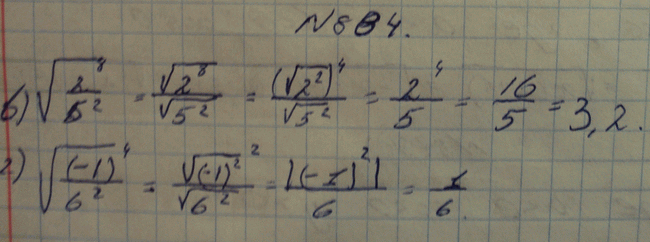 № 884.
б) √(2⁸/5²) = √2⁸/√5² = (√2²)⁴/√5² = 2⁴/5 = 16/5 = 3,2.
г) √((-1)⁴/6²) = √(-1)²²/√6² = |(-1)²|/6 = 1/6.